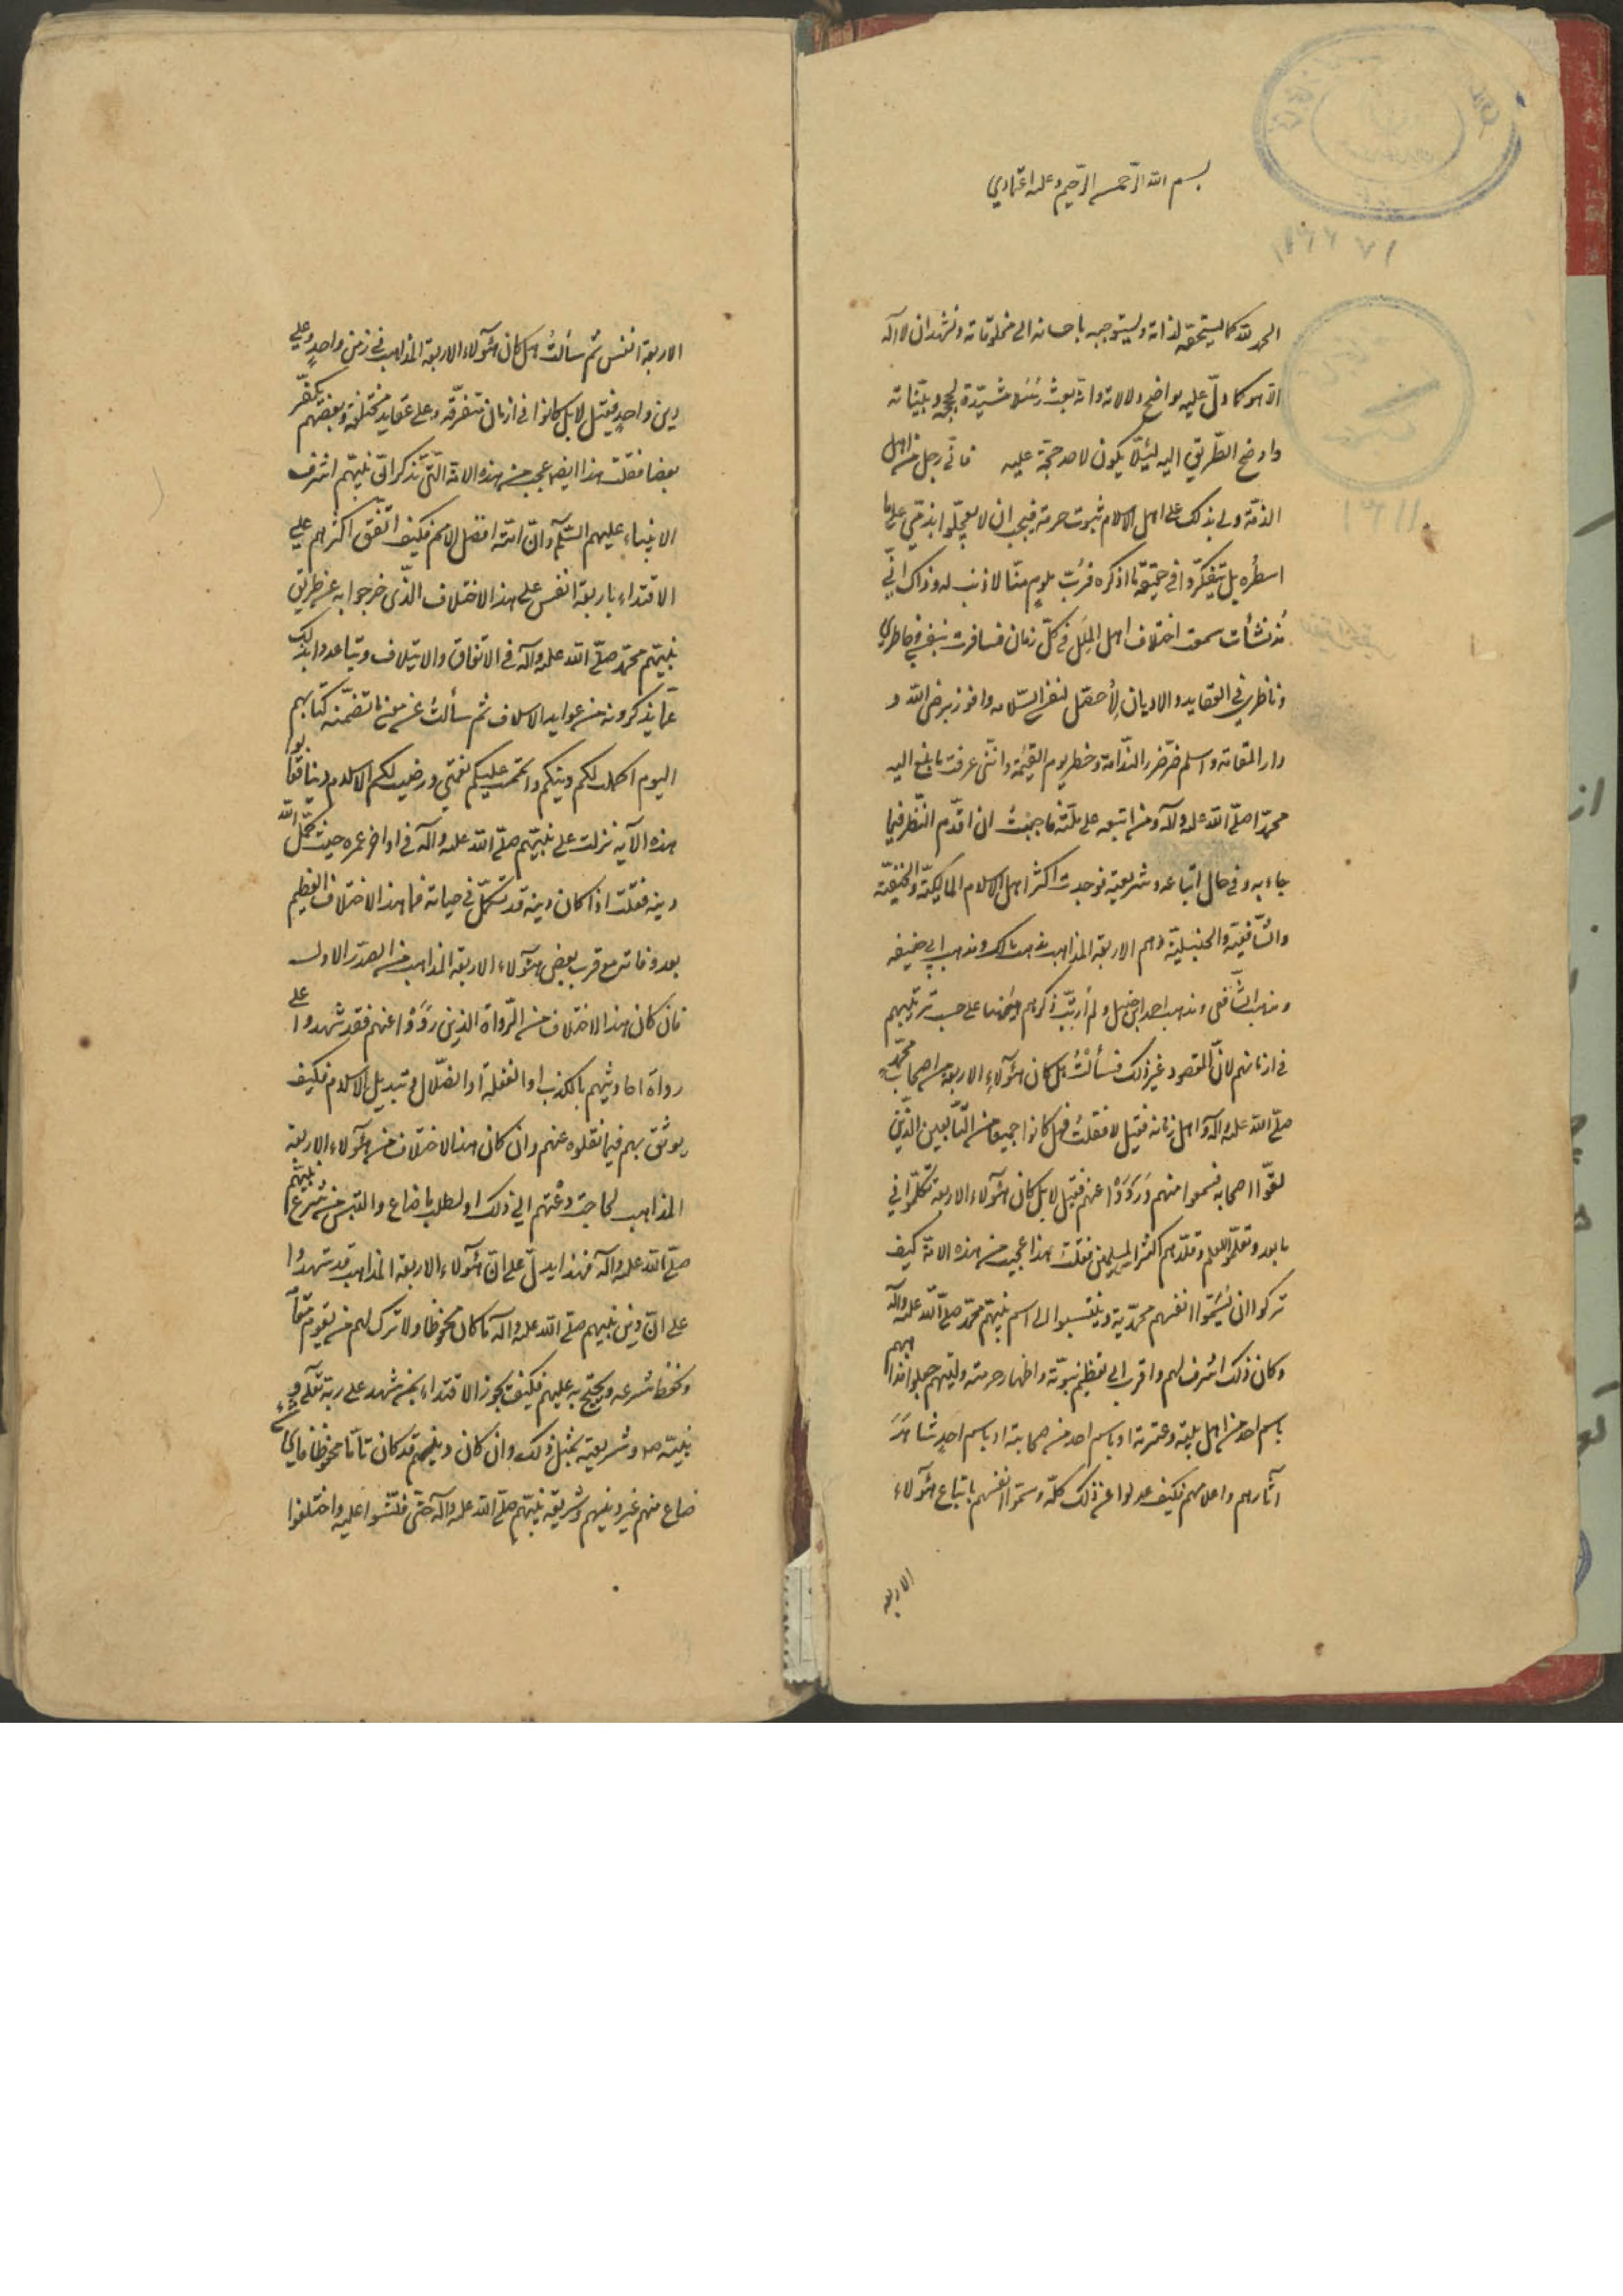 بسم الله الرّحمن الرّحيم وعليه اعتمادي
الحمد لله كما يستحقه لذاته ويستوجبه باحسانه الى مخلوقاته ونشهد ان لا اله
الّا هو كما دلّ عليه بواضح دلالاته وانّه بعث رسُلا مشيّدة بحججه وبيّناته
واوضح الطّريق اليه لئلّا يكون لاحد حجّة عليه فانّى رجل من اهل
الذمّة ولى بذلك على اهل الاسلام ثبوت حرمة فيجب ان لا يعجّلوا بذمّى على ما
اسطُره بل يتفكّروا فى حقيقة ما اذكره فرُبّ ملومٍ منّا لا ذنب له وذاك انّى
مُذ نشأت سمعت اختلاف اهل المِلَل فى كلّ زمان فسافرت بنفسى وخاطرى
وناظرى فى العقايد والاديان لأحصّل لنفسى السّلامه وافوز برضى الله و
دار المقامة واسلم من ضرر النّدامة وخطر يوم القيمة وانّنى عرفت ما بلغ اليه
محمّد صلّى الله عليه وآله ومن اتبعه على ملّته فاحببتُ ان اقدّم النّظر فيما
جاء به وفى حال اتباعه وشريعته فوجدت اكثر اهل الاسلام المالكيّة والحنفيّة
والشّافعيّة والحنبليّة وهم الاربعة المذاهب مذهب مالك ومذهب ابى حنيفه
ومذهب الشّافعى ومذهب احمد ابن حنبل ولم أرتّب ذكرهم هيهنا على حسب ترتيبهم
فى ازمانهم لانّ المقصود غير ذلك فسألتُ هل كان هؤلآءِ الاربعة من اصحاب محمّدٍ
صلّى الله عليه وآله او اهل زمانه فقيل لا فقلتُ فهل كانوا جميعا من التّابعين الّذين
لقُوا اصحابه فسمعوا منهم ورَوَوْا عنهم فقيل لا بل كان هؤلاء الاربعة تكلّموا فى
ما بعد وتعلّموا العلم وقلّدهم اكثر المسلمين فقلت هذا عجيب من هذه الامّة كيف
تركوا ان يُسَمّوا انفسهم محمّديّة وينتسبوا الى اسم نبيّهم محمّد صلّى الله عليه وآله
وكان ذلك اشرف لهم واقرب الى تعظيم نبوّته واظهار حرمته وليتهم جعلوا مذاهبهم
باسم احد من اهل بيته وعترته او باسم احد من صحابته او باسم احدٍ شاهَدَ
آثارهم واعلامهم فكيف عدلوا عن ذلك كلّه وسمّوا انفسهم باتباع هؤلاء
الاربعه
الاربعة انفس ثم سألتُ هل كان هؤلاء الاربعة المذاهب فى زمن واحدٍ وعلى
دين واحدٍ فقيل لا بل كانوا فى ازمانٍ متفرّقة وعلى عقايد مختلفة وبعضهم يكفّر
بعضا فقلت هذا ايضا عجب من هذه الامّة الّتى تذكر انّ نبيّهم اشرف
الانبياء عليهم السّلم وانّ امّته افضل الامم فكيف اتّفق اكثرهم على
الاقتداء باربعة انفس على هذا الاختلاف الّذى خرجوا به عن طريق
نبيّهم محمّد صلّى الله عليه وآله فى الاتفاق والايتلاف وتباعدوا بذلك
عمّا يذكرونه من عوايد الاسلاف ثم سألتُ عن معنى ما تضمّنه كتابهم
اليوم اكملت لكم دينكم واتممت عليكم نعمتى ورضيت لكم الاسلام دينا فقالوا
هذه الآيه نزلت على نبيّهم صلّى الله عليه وآله فى اواخر عمره حيث كمّل الله
دينه فقلت اذا كان دينه قد تكمّل فى حياته فما هذا الاختلاف العظيم
بعد وفاته مع قرب بعض هؤلاء الاربعة المذاهب من الصدر الاول
فان كان هذا الاختلاف من الرّواة الذين رَوَوْا عنهم فقد شهدوا على
رواة احاديثهم بالكذب او الغفلة او الضّلال فى تبديل الاسلام فكيف
يوثق بهم فيما نقلوه عنهم وان كان هذا الاختلاف من هؤلاء الاربعة
المذاهب لحاجة دعتهم الى ذلك او لطلب ما ضاع والتبس من شرع نبيّهم
صلّى الله عليه وآله فهذا يدلّ على انّ هؤلاء الاربعة المذاهب قد شهدُوا
على انّ دين نبيهم صلّى الله عليه وآله ما كان محفوظا ولا ترك لهم من يقوم مقامه
ويحفظ شرعه ويحتج به عليهم فكيف يجوز الاقتداء بمن شهد على ربّه تعالى و
نبيّه صلعم وشريعته بمثل ذلك وان كان دينهم قد كان تامّا محفوظا فاىّ شىء
ضاع منهم غير دينهم وشريعة نبيّهم صلّى الله عليه وآله حتّى فتّشوا عليه واختلفوا